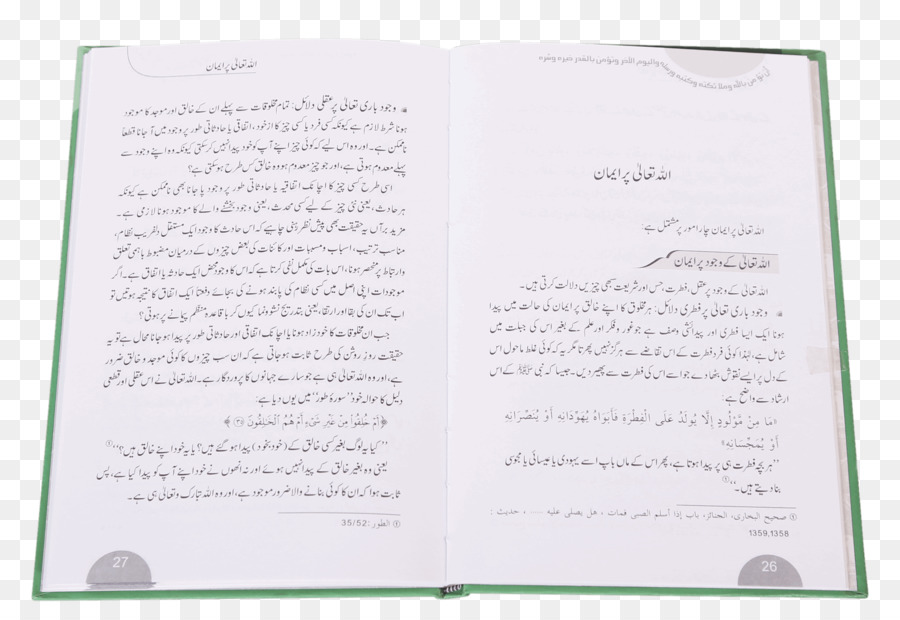 أن تؤمن بالله وملائكته وكتبه ورسله واليوم الآخر وتؤمن بالقدر خيره وشره
اللہ تعالیٰ پر ایمان
اللہ تعالیٰ پر ایمان چار امور پر مشتمل ہے:
اللہ تعالیٰ کے وجود پر ایمان
اللہ تعالیٰ کے وجود پر عقل، فطرت، حس اور شریعت سبھی چیزیں دلالت کرتی ہیں۔
وجود باری تعالیٰ پر فطری دلائل: ہر مخلوق کا اپنے خالق پر ایمان کی حالت میں پیدا
ہونا ایک ایسا فطری اور پیدائشی وصف ہے جو غور و فکر اور علم کے بغیر اس کی جبلت میں
شامل ہے، لہٰذا کوئی فرد فطرت کے اس تقاضے سے ہرگز نہیں پھرتا مگر یہ کہ کوئی غلط ماحول اس
کے دل پر ایسے نقوش بٹھا دے جو اسے اس کی فطرت سے پھیر دیں۔ جیسا کہ نبی ﷺ کے اس
ارشاد سے واضح ہے:
«مَا مِنْ مَوْلُودٍ إِلَّا يُولَدُ عَلَى الْفِطْرَةِ فَأَبَوَاهُ يُهَوِّدَانِهِ أَوْ يُنَصِّرَانِهِ
أَوْ يُمَجِّسَانِهِ»
”ہر بچہ فطرت ہی پر پیدا ہوتا ہے، پھر اس کے ماں باپ اسے یہودی یا عیسائی یا مجوسی
بنا دیتے ہیں۔“①
① صحیح البخاری، الجنائز، باب إذا أسلم الصبی فمات ، هل یصلی علیه ..... ، حدیث :
1359,1358
26
اللہ تعالیٰ پر ایمان
وجود باری تعالیٰ پر عقلی دلائل: تمام مخلوقات سے پہلے ان کے خالق اور موجد کا موجود
ہونا شرط لازم ہے کیونکہ کسی فرد یا کسی چیز کا از خود، اتفاقی یا حادثاتی طور پر وجود میں آ جانا قطعاً
ناممکن ہے۔ اور وہ اس لیے کہ کوئی چیز اپنے آپ کو خود پیدا نہیں کر سکتی کیونکہ وہ اپنے وجود سے
پہلے معدوم ہوتی ہے، اور جو چیز معدوم ہو وہ خالق کس طرح ہو سکتی ہے؟
اسی طرح کسی چیز کا اچانک اتفاقیہ یا حادثاتی طور پر وجود پا جانا بھی ناممکن ہے کیونکہ
ہر حادث، یعنی نئی چیز کے لیے کسی محدث، یعنی وجود بخشنے والے کا موجود ہونا لازمی ہے۔
مزید برآں یہ حقیقت بھی پیش نظر رہنی چاہیے کہ اس حادث کا وجود ایک مستقل دلفریب نظام،
مناسب ترتیب، اسباب و مسببات اور کائنات کی بعض چیزوں کے درمیان مضبوط باہمی تعلق
وارتباط پر منحصر ہونا، اس بات کی مکمل نفی کرتا ہے کہ اس کا وجود محض ایک حادثہ یا اتفاق ہے۔ اگر
موجودات اپنی اصل میں کسی نظام کی پابند ہونے کی بجائے دفعتاً ایک اتفاق کا نتیجہ ہوتیں تو
اب تک ان کی بقا اور ارتقا، یعنی بتدریج نشوونما کیوں کر باقاعدہ منظم پیمانے پر ہوتی؟
جب ان مخلوقات کا خود زاد ہونا یا اچانک اتفاقی اور حادثاتی طور پر پیدا ہو جانا محال ہے تو یہ
حقیقت روز روشن کی طرح ثابت ہو جاتی ہے کہ ان سب چیزوں کا کوئی موجد و خالق ضرور
ہے، اور وہ اللہ تعالیٰ ہی ہے جو سارے جہانوں کا پروردگار ہے۔ اللہ تعالیٰ نے اس عقلی اور قطعی
دلیل کا حوالہ خود ”سورۂ طور“ میں یوں دیا ہے:
﴿أَمْ خُلِقُوا مِنْ غَيْرِ شَيْءٍ أَمْ هُمُ الْخَالِقُونَ ﴾
”کیا یہ لوگ بغیر کسی خالق کے (خود بخود) پیدا ہو گئے ہیں؟ یا یہ خود اپنے خالق ہیں؟“①
یعنی وہ بغیر خالق کے پیدا نہیں ہوئے اور نہ انھوں نے خود اپنے آپ کو پیدا کیا ہے، پس
ثابت ہوا کہ ان کا کوئی بنانے والا ضرور موجود ہے، اور وہ اللہ تبارک و تعالیٰ ہی ہے۔
① الطور :35/52
27